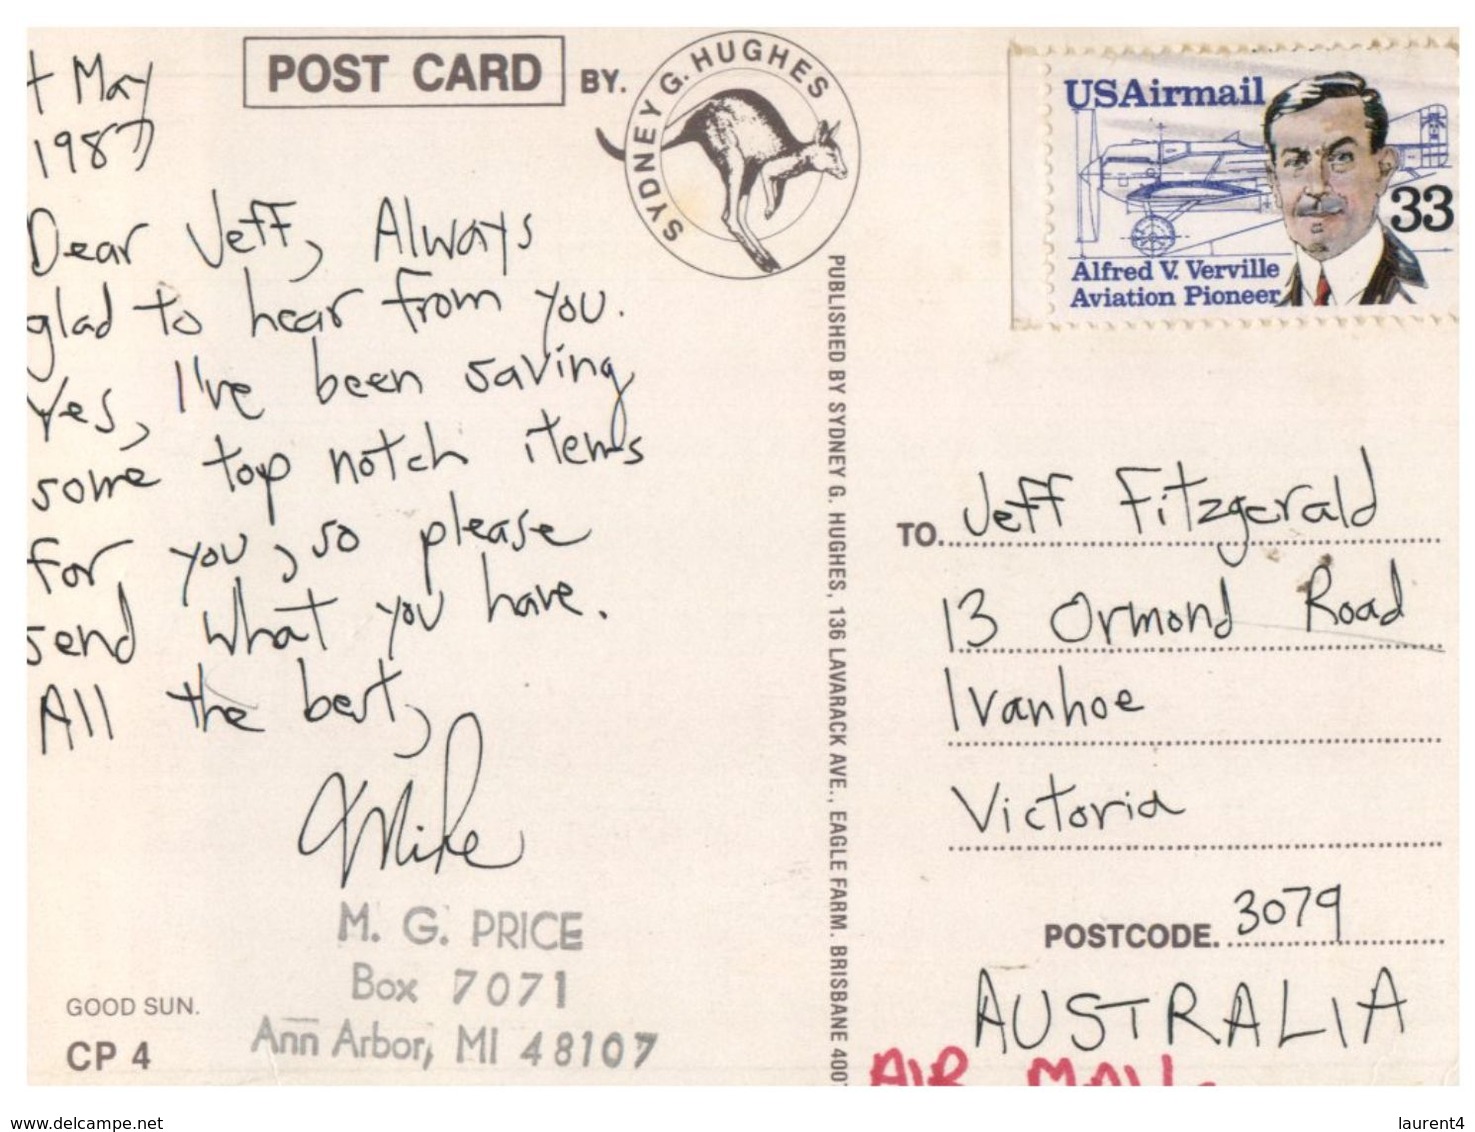 May
1987
POST CARD BY.
SYDNEY G. HUGHES
Dear Jeff, Always
glad to hear from you.
Yes, I've been saving
some top notch items
for you, so please
send what you have.
All the best,
Mike
M. G. PRICE
Box 7071
Ann Arbor, MI 48107
GOOD SUN.
CP 4
PUBLISHED BY SYDNEY G. HUGHES, 136 LAVARACK AVE., EAGLE FARM. BRISBANE 4007
USAirmail
33
Alfred V. Verville
Aviation Pioneer
TO. Jeff Fitzgerald
13 Ormond Road
Ivanhoe
Victoria
POSTCODE. 3079
AUSTRALIA
AIR MAIL
www.delcampe.net
laurent4